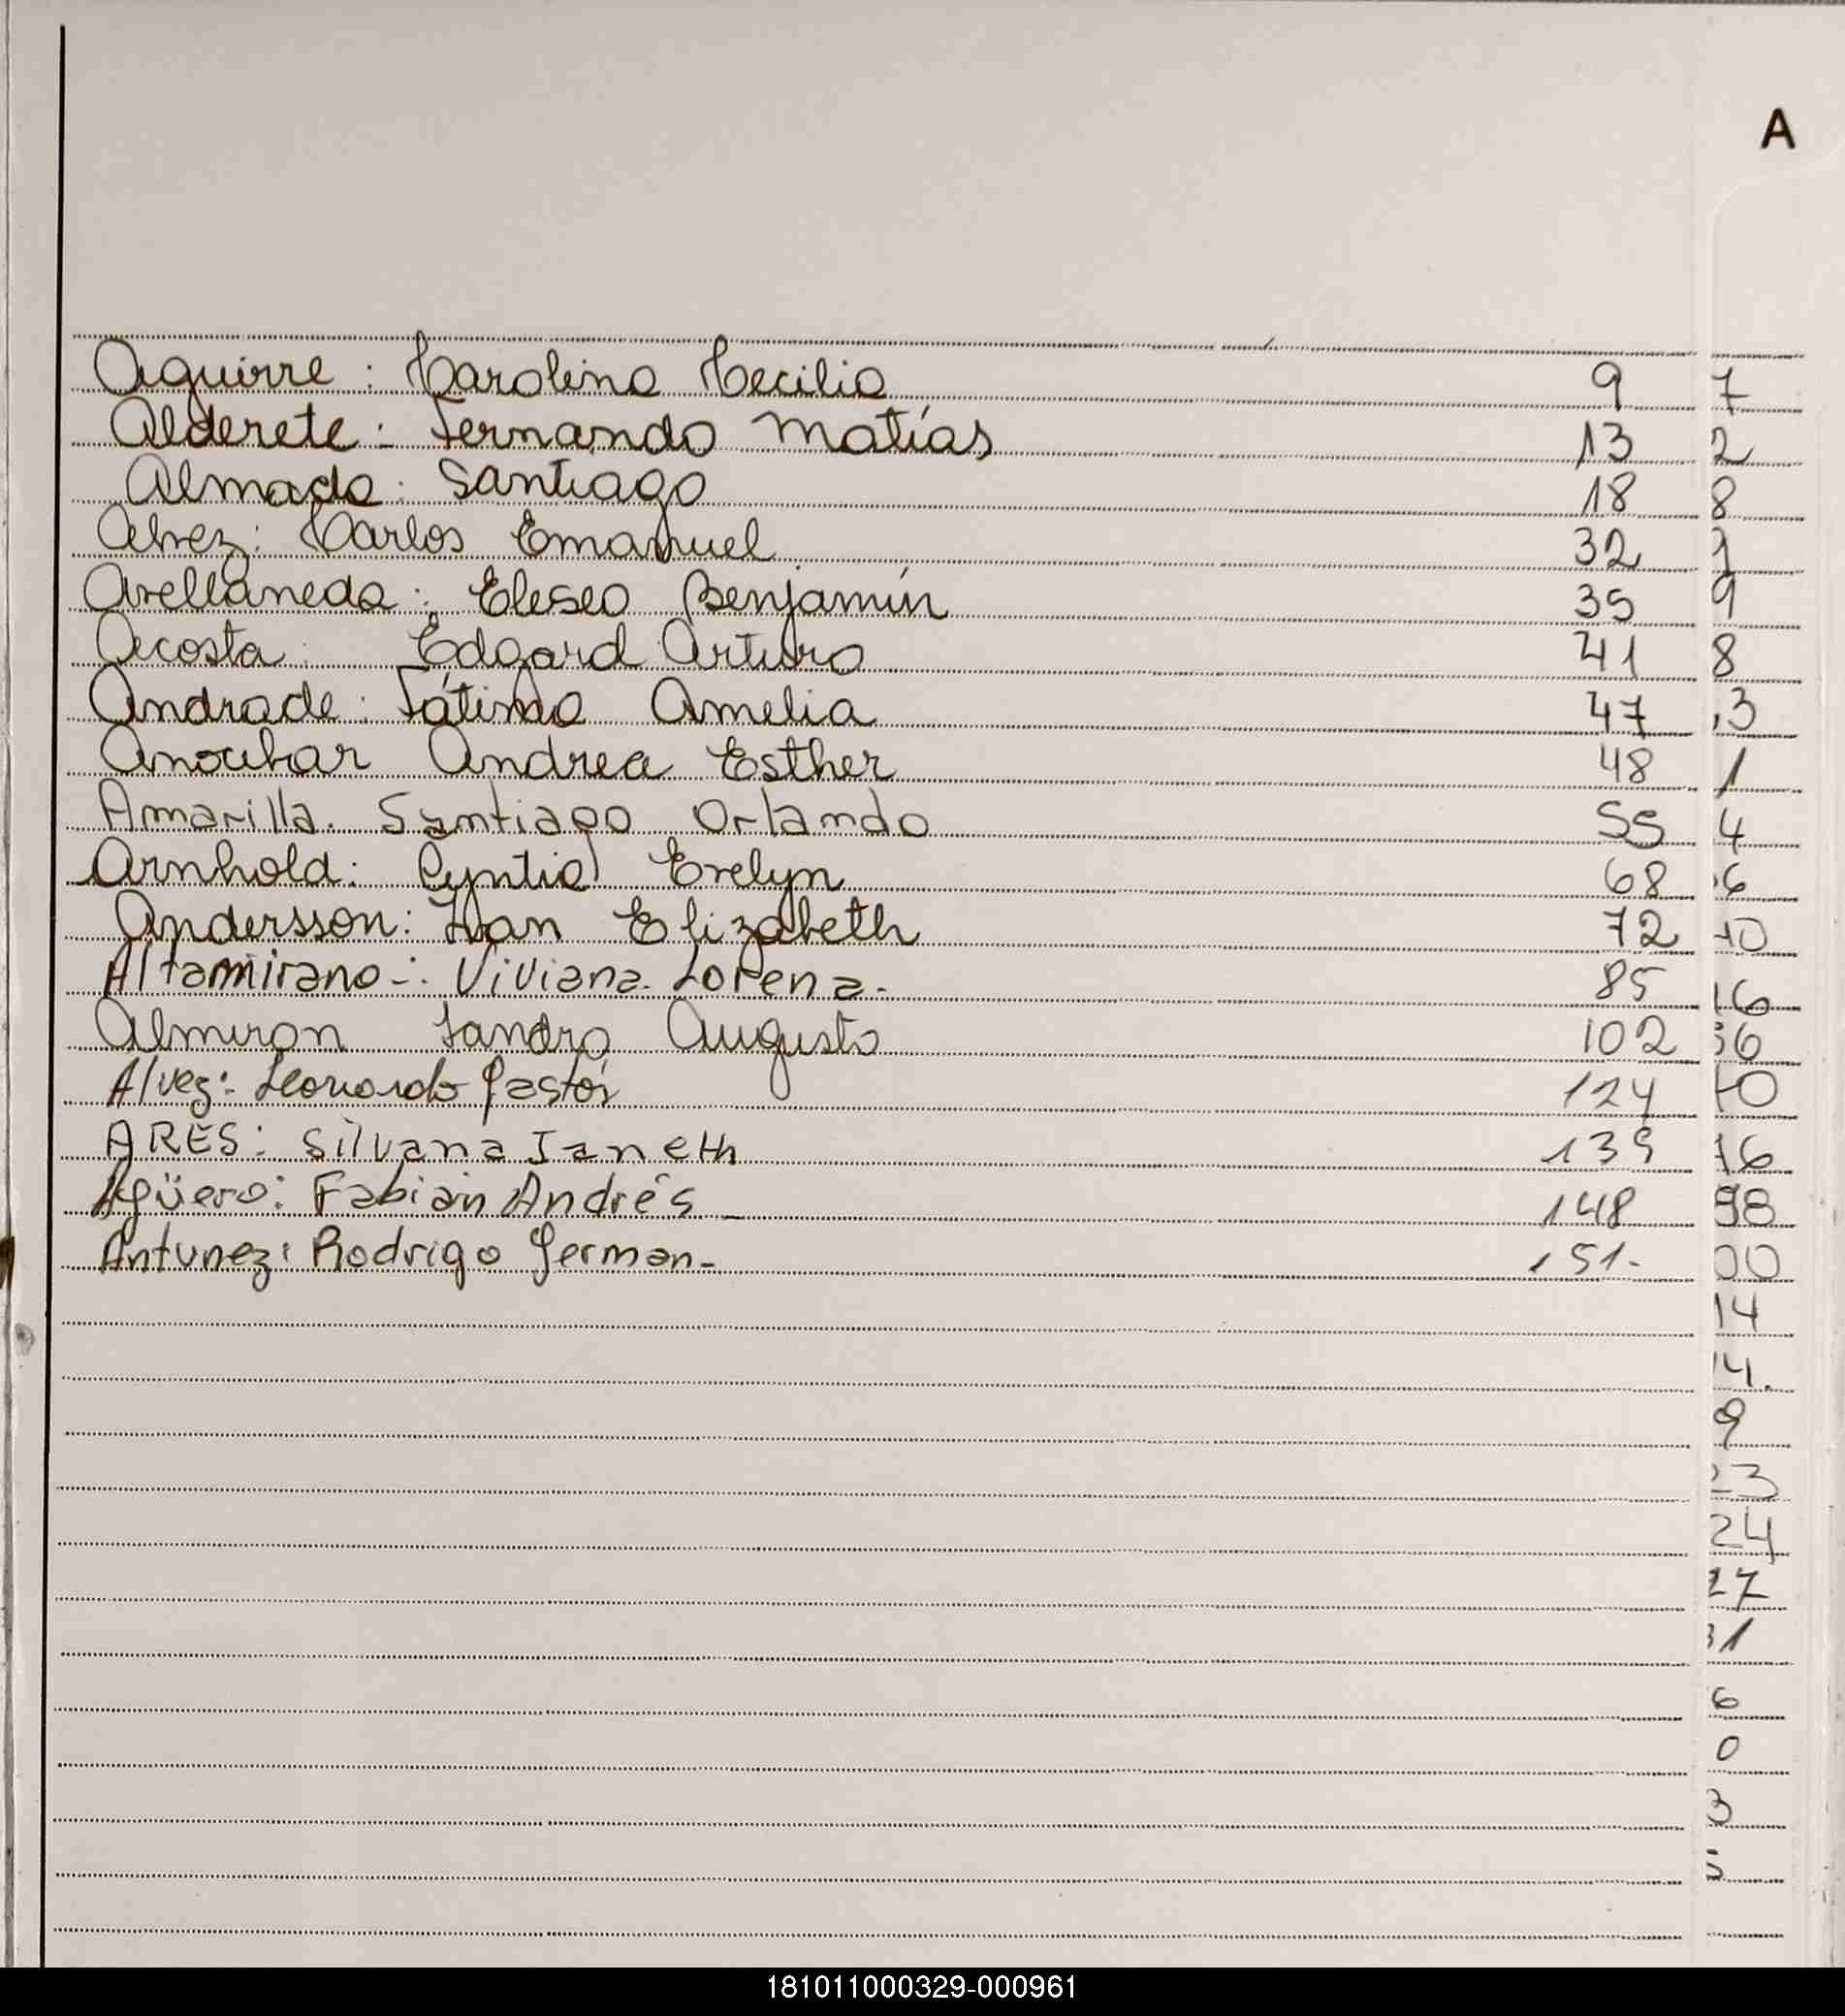 A
Aguirre : Carolina Cecilia 9
Alderete : Fernando Matías 13
Almada : Santiago 18
Alvez : Carlos Emanuel 32
Avellaneda : Eliseo Benjamín 35
Acosta : Edgard Arturo 41
Andrade : Fátima Amelia 47
Andrea Esther 48
Amarilla. Santiago Orlando 55
Arnhold : Cyntia Evelyn 68
Andersson : Elizabeth 72
Altamirano -: Viviana. Lorena. 85
Almiron Sandro Augusto 102
Alvez : Leonardo Pastor 124
ARES : Silvana Janeth 139
Agüero : Fabián Andrés _ 148
Antunez : Rodrigo German - 151-
7
2
8
1
9
8
3
1
4
6
10
16
36
16
98
00
14
14.
9
23
24
27
31
6
0
3
5
181011000329-000961